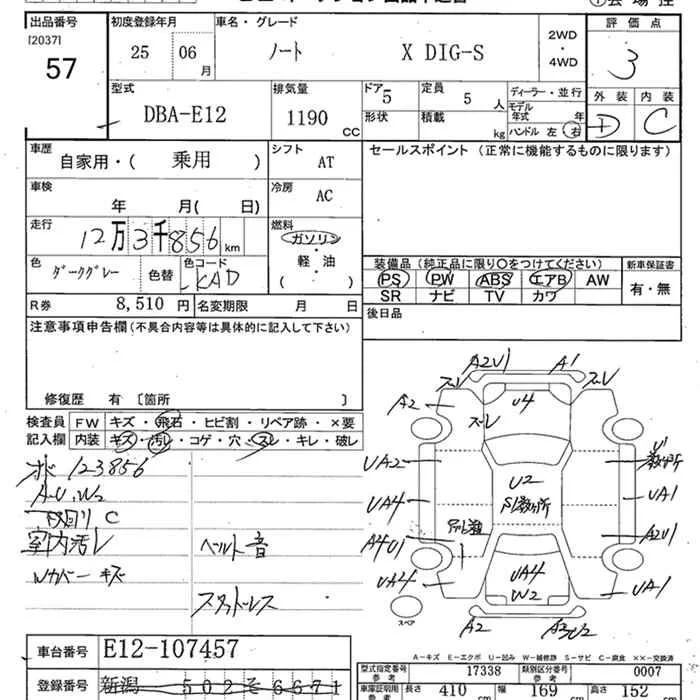 出品番号 初度登録年月 車名・グレード 評価点
[2037] 25 06 月 ノート X DIG-S 2WD ・ 4WD 3
57
型式 排気量 ドア 定員 ディーラー・並行 外装 内装
DBA-E12 1190 CC 5 5 人 モデル年式 年 D C
形状 積載 kg ハンドル 左 右
車歴 自家用・( 乗用 ) シフト AT セールスポイント (正常に機能するものに限ります)
車検 年 月( 日) 冷房 AC
走行 12万3千856 km 燃料 ガソリン・軽・油 ( )
色 ダークグレー 色替 色コード KAD 装備品 (純正品に限り○をつけてください) 新車保証書
PS PW ABS エアB AW 有・無
SR ナビ TV カワ
R券 8,510 円 名変期限 月 日 後日品
注意事項申告欄(不具合内容等は具体的に記入して下さい)
修復歴 有 [箇所 ]
検査員記入欄 FW キズ・飛石・ヒビ割・リペア跡・×要
内装 キズ・汚レ・コゲ・穴・スレ・キレ・破レ
123856
A・U、W2
C
室内汚レ ベルト音
Wカバーキズ
A2U1 A1
A2 U4
UA2 U2 U1
UA4 UA1
A4U1 A2U1
UA4 UA4 W2 UA1
スペア A2
車台番号 E12-107457
登録番号 新潟 502 そ 6671
A-キズ E-エクボ U-凹み W-補修跡 S-サビ C-腐食 ××-交換済
型式指定番号 参考 17338 類別区分番号 参考 0007
車庫証明用 参考 長さ 410 cm 幅 169 cm 高さ 152 cm